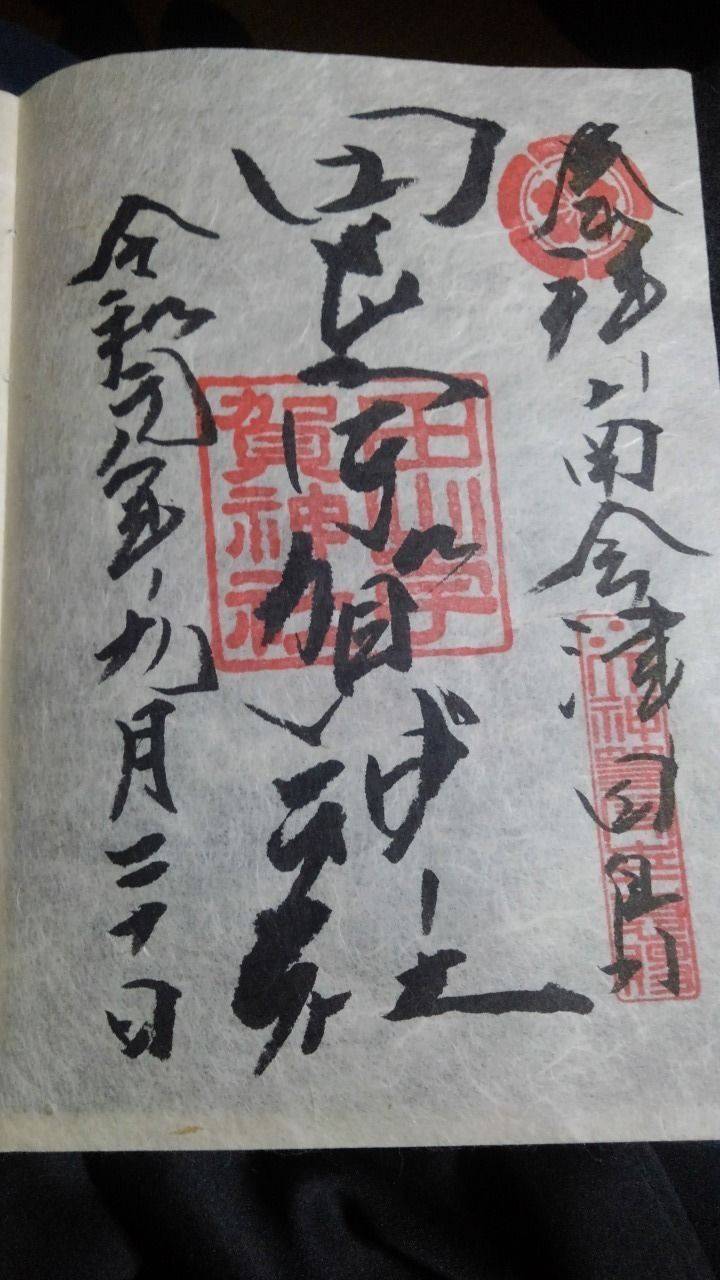 奉拝 南会津田島
田出宇賀神社
令和元年九月二十日
田出宇
賀神社